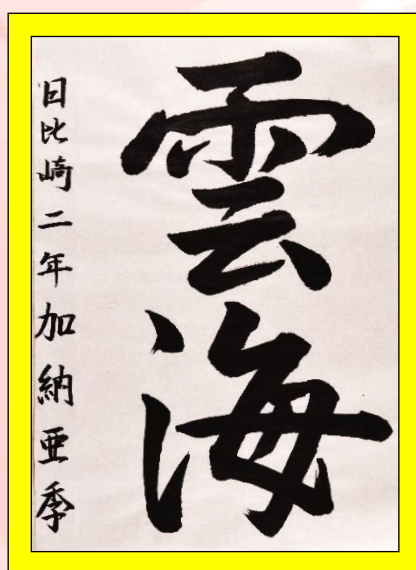 雲海
日比崎二年加納亜季